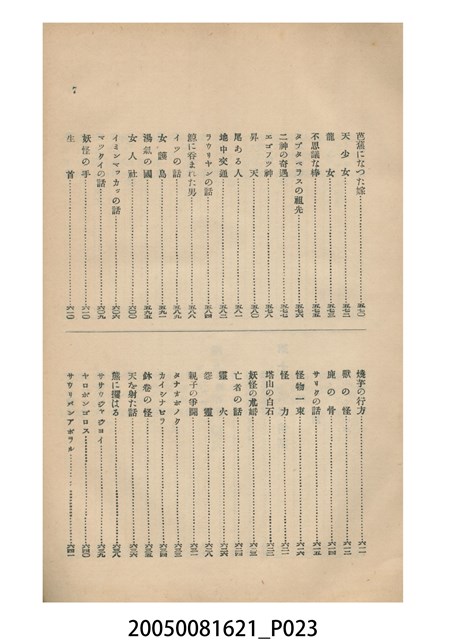 芭蕉になつた嫁……五七〇
天少女……五七二
龍女……五七三
不思議な棒……五七五
タブタベラスの祖先……五七六
二神の奇遇……五七七
エゴフツ神……五七八
昇天……五八〇
尾ある人……五八一
地中交通……五八二
ラウリヤンの話……五八四
鯨に呑まれた男……五八六
イワの話……五八九
女護島……五九一
湯氣の國……五九五
女人社……六〇〇
イミンマッカッの話……六〇六
マツクイの話……六〇九
妖怪の手……六一〇
生首……六一〇
七
燒芋の行方……六一一
獸の怪……六一二
鹿の骨……六一四
サリクの話……六一五
怪物一束……六一六
怪力……六二一
塔山の白石……六二二
妖怪の竈語……六二三
亡者の話……六二四
靈火……六二六
怨靈……六二八
親子の爭鬪……六三一
タナオホノク……六三三
カイシナヒラ……六三四
鉢卷の怪……六三五
天を射た話……六三六
熊に擢はる……六三八
ササウシャウヨイ……六三九
ヤロポンゴロス……六四〇
サウリメンアポラル……六四一
20050081621_P023